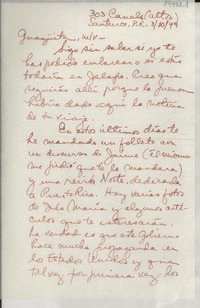 303 Canals (altos)
Santurce, P.R. 3/10/49
Guaynita, m/v-
Sigo sin saber si ya te
has podido embarcar o si estás
todavía en Jalapa. Creo que
seguirás allí porque la prensa
habría dado aquí la noticia
de tu viaje.
En estos últimos días te
he mandado un folleto con
un discurso de Jaime (él mismo
me pidió que te lo mandara)
y una revista Norte, dedicada
a Puerto Rico. Hay varias fotos
de Inés María y algunos artí-
culos que te interesarán.
La verdad es que este Gobierno
hace mucha propaganda en
los Estados Unidos y que
tal vez por primera vez los